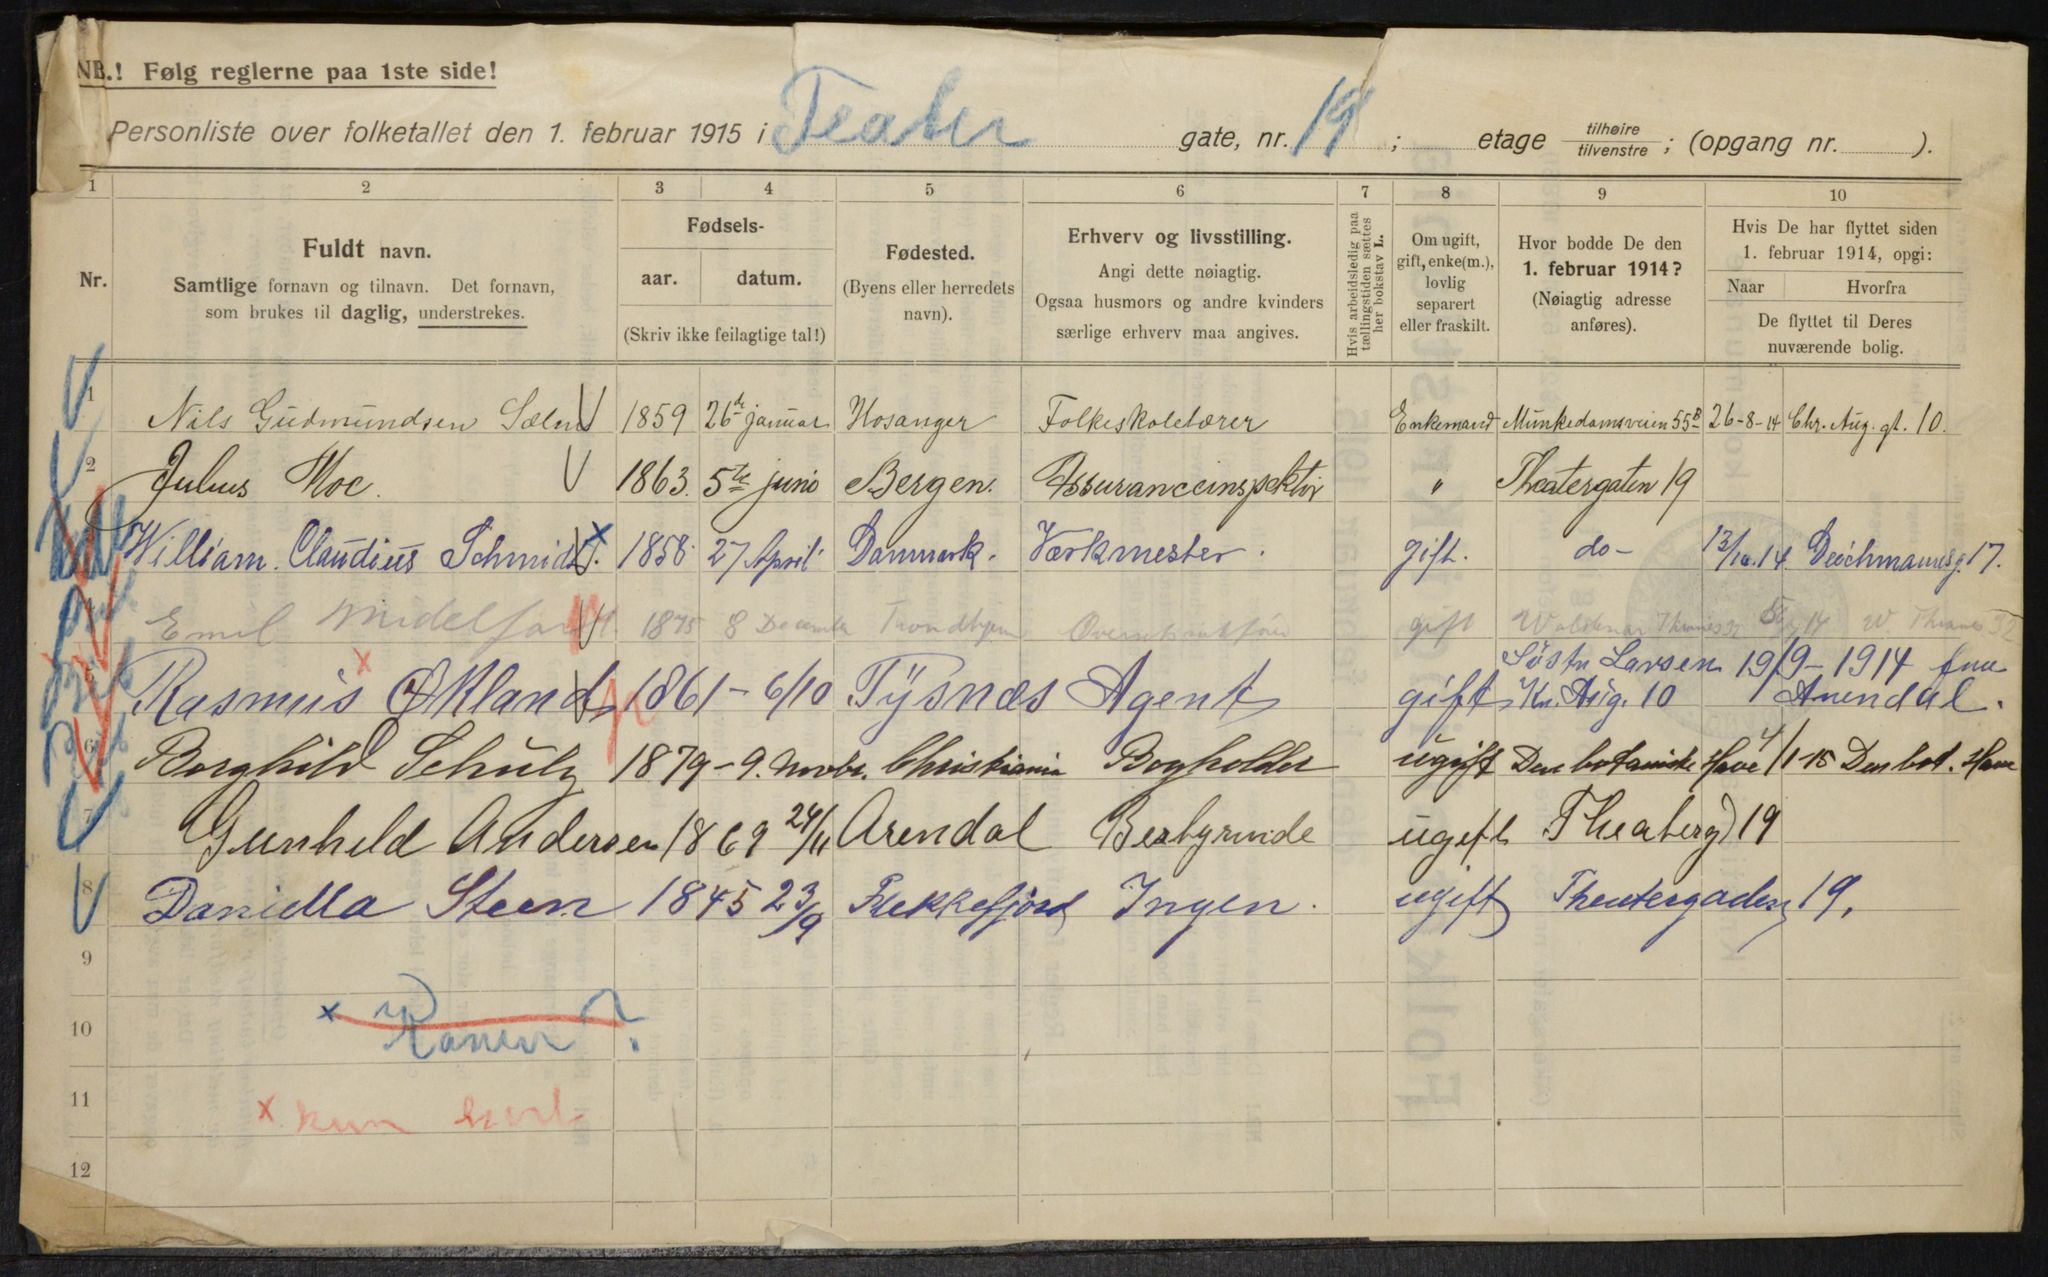 NB.! Følg reglerne paa 1ste side!
Personliste over folketallet den 1. februar 1915 i Teater gate, nr. 19 ; etage tilhøire tilvenstre ; (opgang nr. ).
1 2 3 4 5 6 7 8 9 10
Nr.
Fuldt navn.
Samtlige fornavn og tilnavn. Det fornavn,
som brukes til daglig, understrekes.
Fødsels-
aar. datum.
(Skriv ikke feilagtige tal!)
Fødested.
(Byens eller herredets
navn).
Erhverv og livsstilling.
Angi dette nøiagtig.
Ogsaa husmors og andre kvinders
særlige erhverv maa angives.
Hvis arbeidsledig paa
tællingstiden sættes
her bokstav L.
Om ugift,
gift, enke(m.),
lovlig
separert
eller fraskilt.
Hvor bodde De den
1. februar 1914?
(Nøiagtig adresse
anføres).
Hvis De har flyttet siden
1. februar 1914, opgi:
Naar Hvorfra
De flyttet til Deres
nuværende bolig.
1 Nils Gudmundsen Sælen 1859 26de januar Hosanger Folkeskolelærer Enkemand Munkedamsveien 55B 26-8-14 Chr. Aug. gt. 10.
2 Julius Moe. 1863. 5te juni Bergen. Assuranceinspektør " Theatergaten 19
William. Claudius Schmidt. 1858. 27 April Danmark. Værkmester. gift. do- 13/10.14 Deichmannsg. 17.
4 Emil Midelfart 1875 8 December Trondhjem gift 14 W. Thranes 32
Rasmus Økland 1861 - 6/10 Tysnæs Agent gift Søstr Larsen Kr. Aug. 10 19/9-1914 fra Arendal.
6 Borghild Schulz 1879 - 9. Novbr. Christiania Bogholder ugift Den botaniske Have 4/1-15 Den bot. Have
7 Gunhild Andersen 1869 24/11 Arendal Bestyrinde ugift Theaterg 19
8 Daniella Steen 1845 23/9 Flekkefjord Ingen. ugift Theatergaden 19.
9
10 x Ranen?
11 x kun kort
12